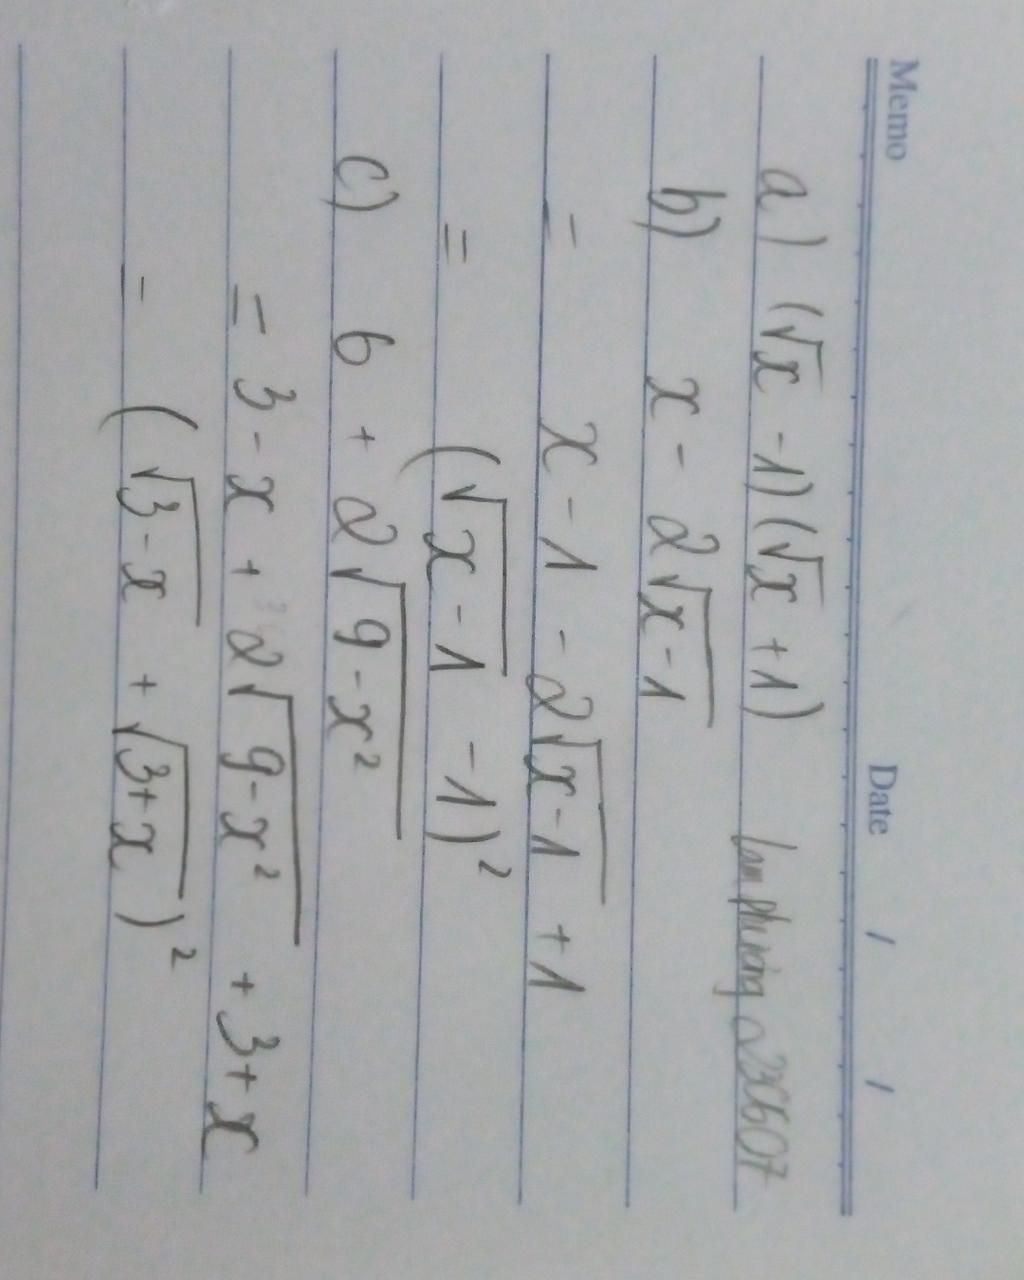 Memo Date / /
a) (√x - 1)(√x + 1) lamphuong23C607
b) x - 2√(x-1)
= x - 1 - 2√(x-1) + 1
= (√(x-1) - 1)²
c) 6 + 2√(9-x²)
= 3 - x + 2√(9-x²) + 3 + x
= (√(3-x) + √(3+x))²